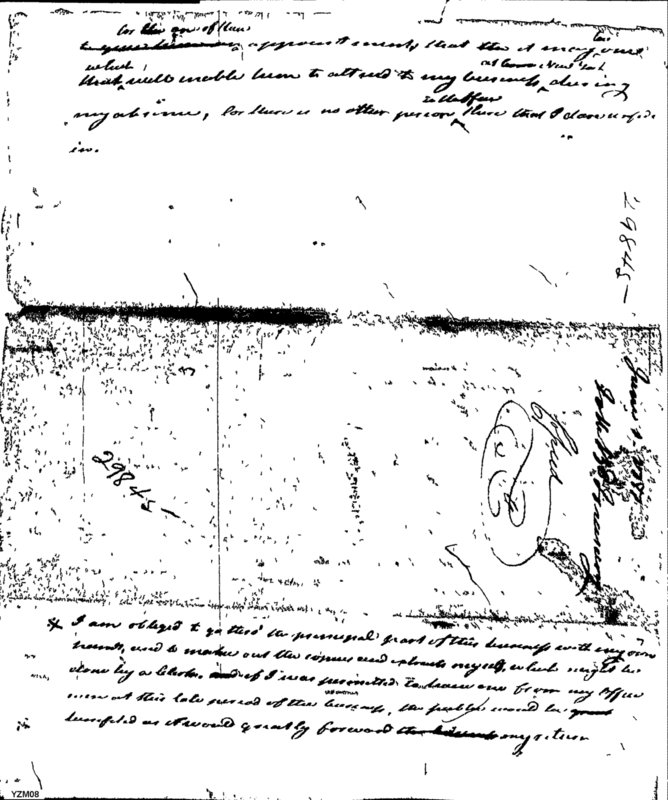 for the one of these
appointments, that the it may
which, at home
that will enable him to attend to my business during
in the office
my absence, for there is no other person there that I dare confide
in.
29845
29845
Copied
June 1787
* I am obliged to go thro' the principal part of this business with my own
hands, and to make out the copies and abstracts myself, which might be
done by a Clerk. and if I was permitted to have one from my Office
even at this late period of the business, the public would be
benefited as it would greatly forward the business my return
YZM08